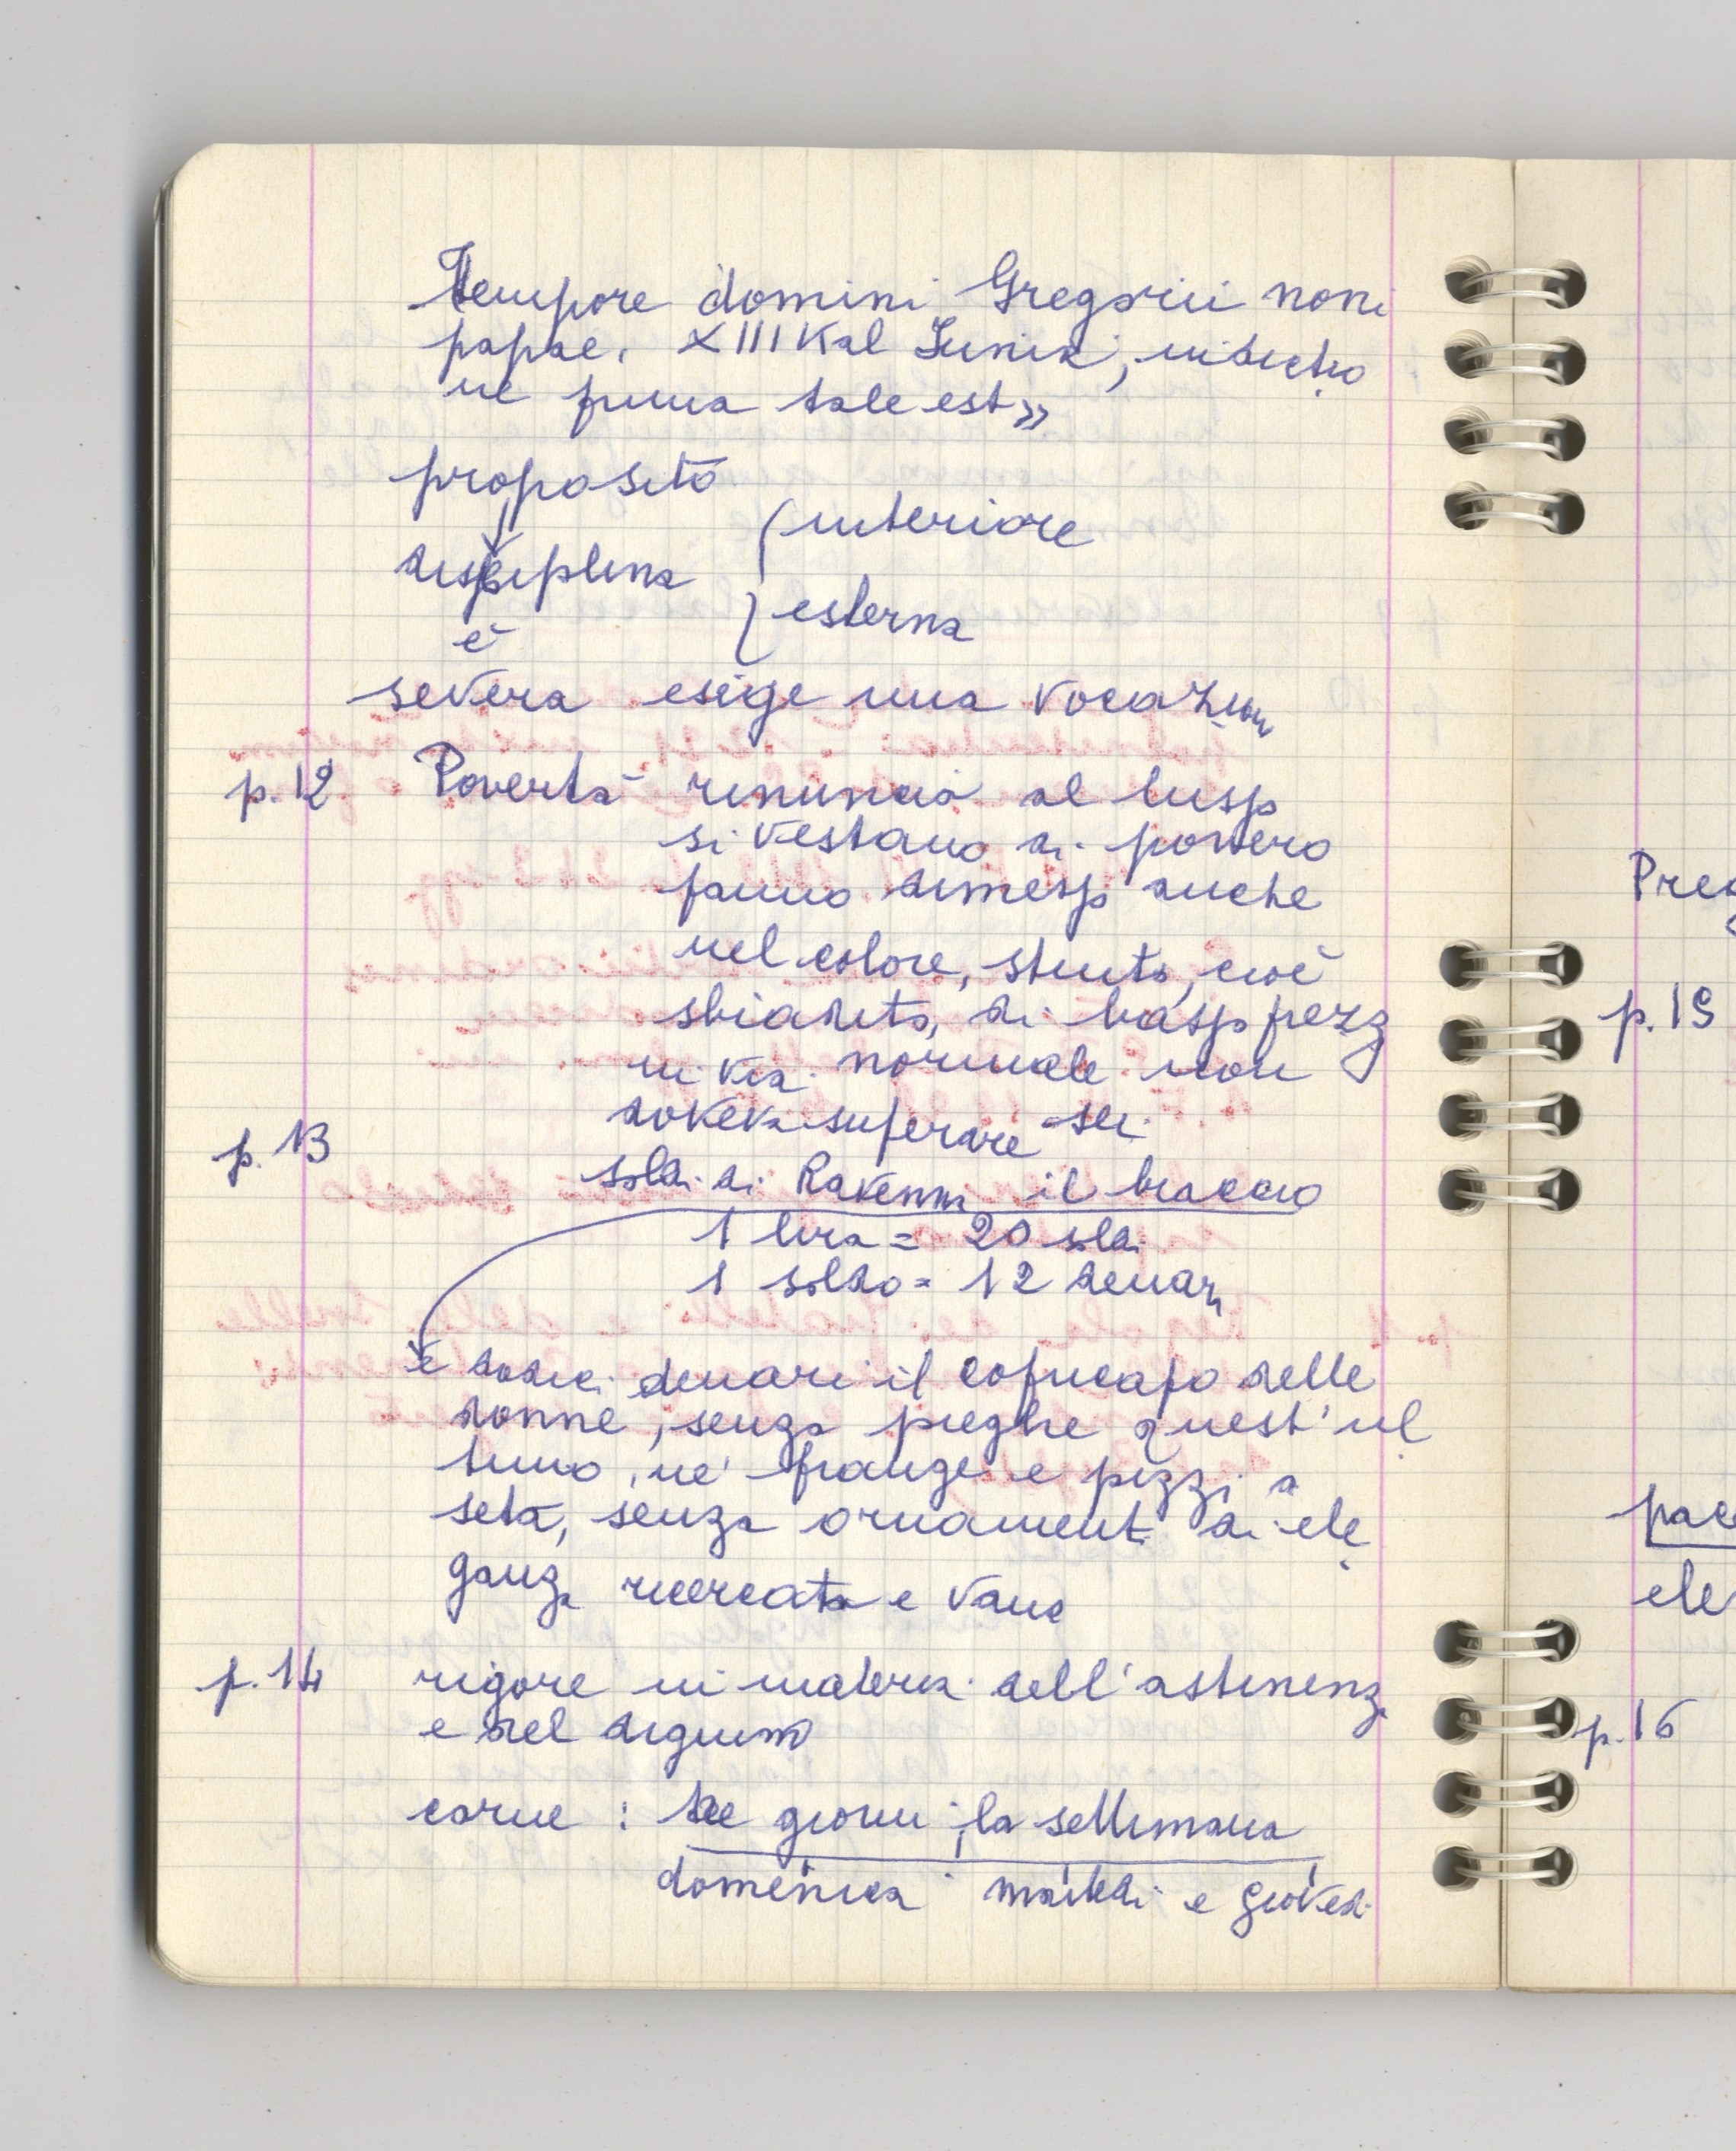 tempore domini Gregorii noni
papae, XIII Kal Junii, indictio
ne prima tale est»
proposito
disciplina
interiore
esterna
è
severa esige una vocazion
p. 12 Povertà rinuncia al lusso
si vestano di povero
panno dimesso anche
nel colore, stinto, cioè
sbiadito, di basso prezz
in via normale non
doveva superare sei
p. 13
soldi di Ravenna il braccio
1 lira = 20 soldi
1 soldo = 12 denari
e dodici denari il copricapo delle
donne, senza pieghe quest'ul
timo, né frange e pizzi a
seta, senza ornamenti di ele
ganza ricercata e vana
p. 14 rigore in materia dell'astinenza
e del digiuno
carne : tre giorni la settimana
domenica martedì e giovedì
Pre
p. 15
pac
ele
p. 16